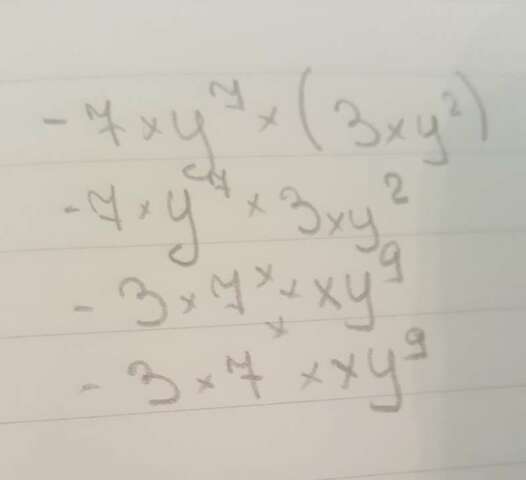 -7×y⁷×(3×y²)
-7×y⁷×3×y²
-3×7××xy⁹
-3×7×××y⁹